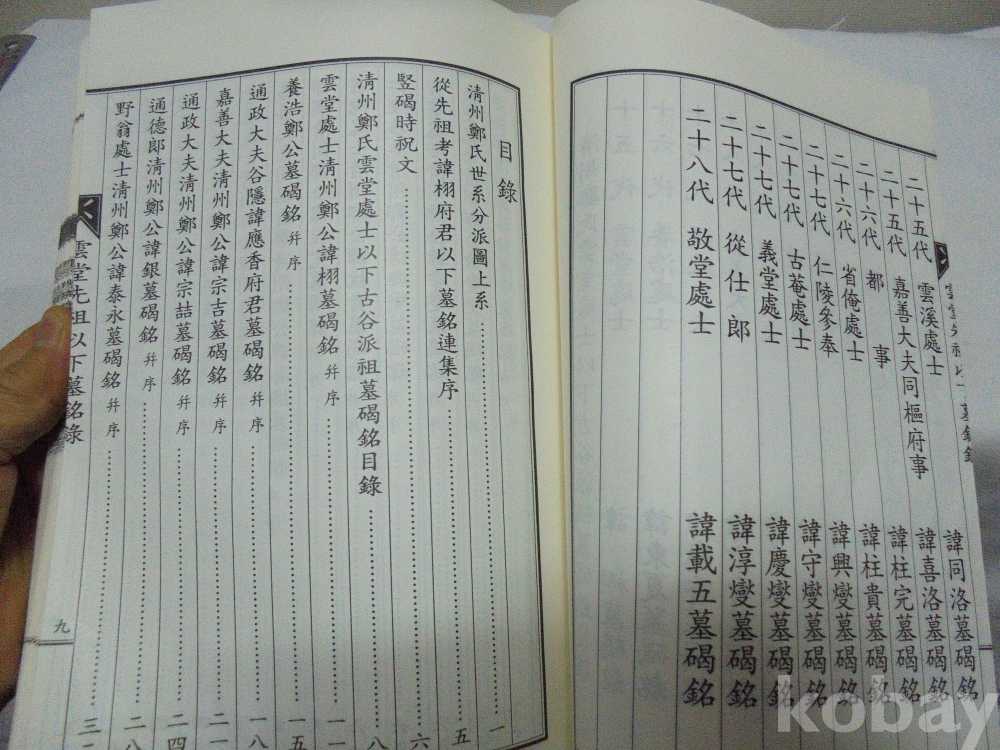 二十五代 雲溪處士 諱同洛墓碣銘
二十五代 嘉善大夫同樞府事 諱喜洛墓碣銘
二十六代 都事 諱柱完墓碣銘
二十六代 省俺處士 諱柱貴墓碣銘
二十七代 仁陵參奉 諱興燮墓碣銘
二十七代 古菴處士 諱守燮墓碣銘
二十七代 義堂處士 諱慶燮墓碣銘
二十七代 從仕郎 諱淳燮墓碣銘
二十八代 敬堂處士 諱載五墓碣銘
目錄
清州鄭氏世系分派圖上系 一
從先祖考諱栩府君以下墓銘連集序 五
竪碣時祝文 六
清州鄭氏雲堂處士以下古谷派祖墓碣銘目錄 八
雲堂處士清州鄭公諱栩墓碣銘 幷序
養浩鄭公墓碣銘 幷序 一五
通政大夫谷隱諱應香府君墓碣銘 幷序 一八
嘉善大夫清州鄭公諱宗吉墓碣銘 幷序 二一
通政大夫清州鄭公諱宗喆墓碣銘 幷序 二四
通德郎清州鄭公諱銀墓碣銘 幷序 二八
野翁處士清州鄭公諱泰永墓碣銘 幷序
雲堂先祖以下墓銘錄
九
kobay